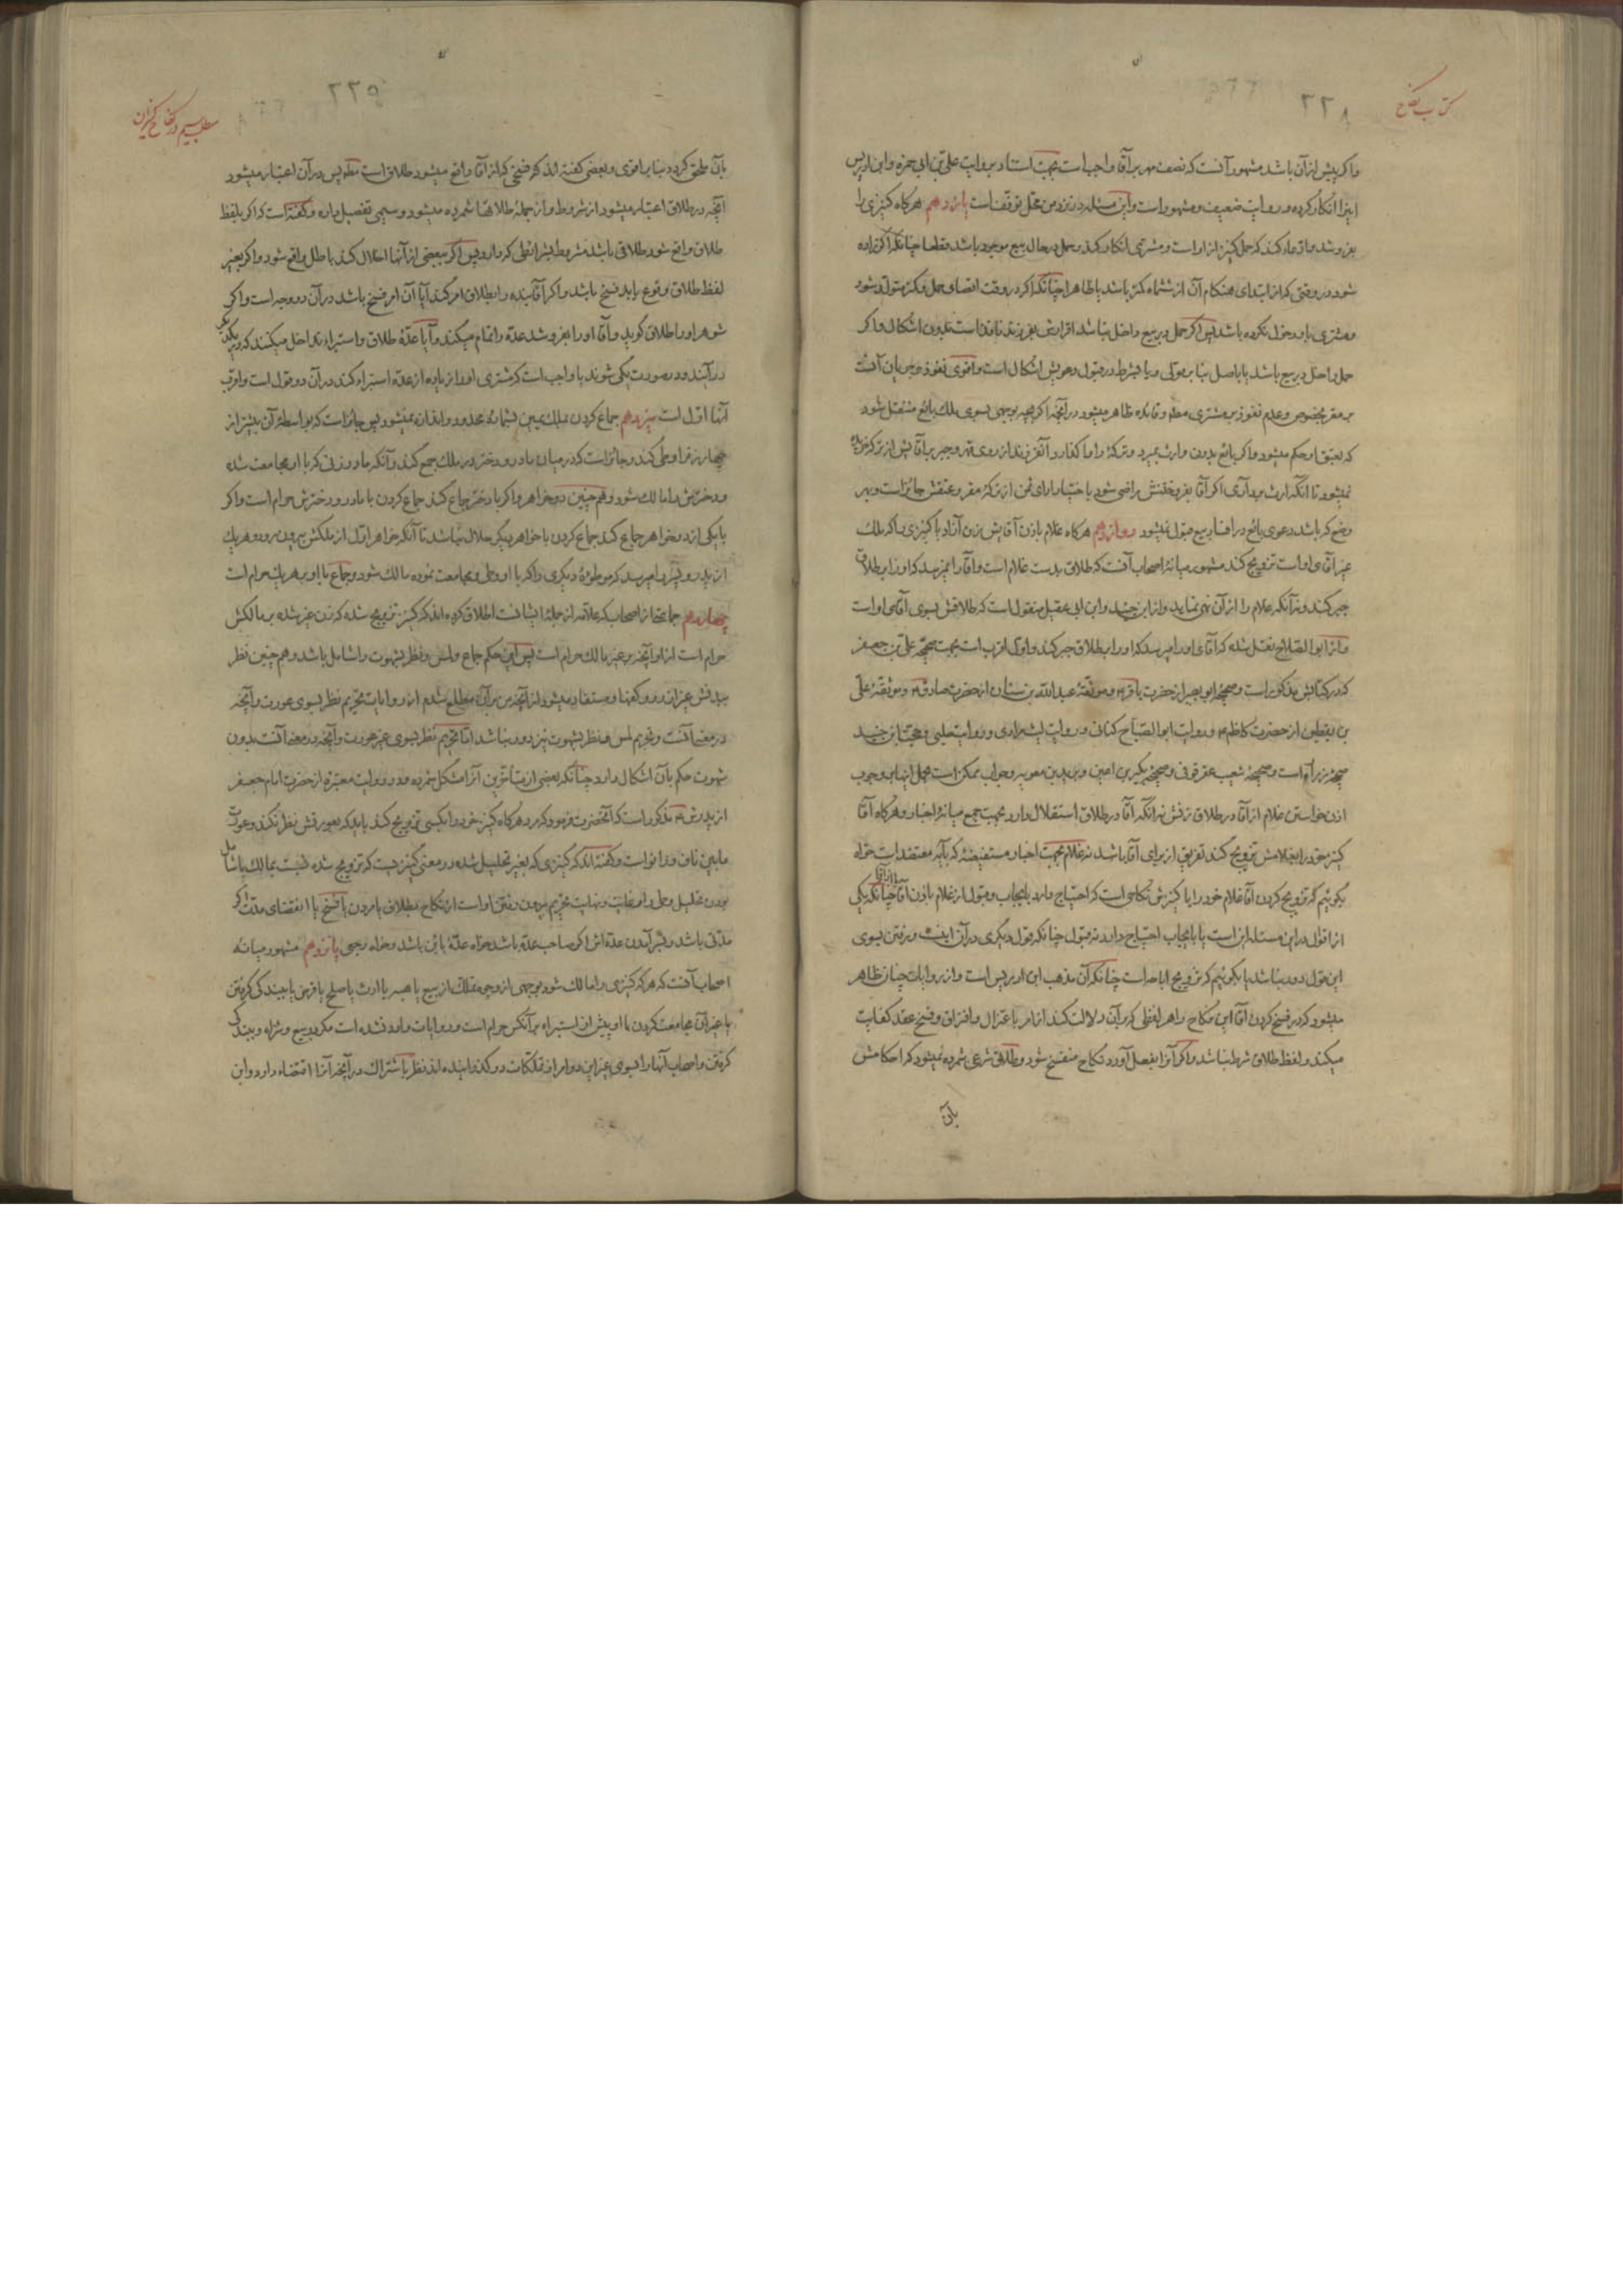 کتاب نکاح
۲۲۸
واکر پیش از آن باشد مشهور آنست که نصف مهر بر آقا واجب است بجهت استناد بروایت علی بن ابی حمزه وابن ادریس
اینرا انکار کرده و روایت ضعیف ومشهور است واین مسئله در نزد من محل توقف است یازدهم هرکاه کنیزی را
بفروشد وادعاء کند که حمل کنیز از او است ومشتری انکار کند وحمل در حال بیع موجود باشد قطعا چنانکه اکر زاده
شود در وقتی که از ابتدای هنکام آن از ششماه کمتر باشد یا ظاهرا چنانکه اکر در وقت اقصای حمل وکمتر متولد شود
ومشتری باو دخول نکرده باشد پس اکر حمل در بیع داخل نباشد اقرارش بفرزند نافذ است بدون اشکال واکر
حمل داخل در بیع باشد یا باصل بنا بر قولی ویا بشرط در قبول دعویش اشکال است واقوی نفوذ وجریان آنست
بر مقر بخصوص وعدم نفوذ بر مشتری مطلقا وفایده ظاهر میشود در آنچه اکر بچه بوجهی بسوی ملک بائع منتقل شود
که بعتق او حکم میشود واکر بائع بدون وارث بمیرد وترکهٔ واما کذارد آنفرزند از روی قهر وجبر بر آقایش از ترکه خریده
نمیشود تا آنکه ارث برد آری اکر آقا بفروختنش راضی شود با اختیار ادای ثمن از ترکهٔ مقر وعتقش جائز است وبهر
وضع که باشد دعوی بائع در افساد بیع قبول نمیشود دوازدهم هرکاه غلام باذن آقایش زن آزاد یا کنیزی را که ملک
غیر آقای او است تزویج کند مشهور میانهٔ اصحاب آنست که طلاق بدست غلام است وآقا را نمیرسد که او را بر طلاق
جبر کند ونه آنکه غلام را از آن نهی نماید واز ابن جنید وابن ابی عقیل منقول است که طلاقش بسوی آقای او است
واز ابو الصلاح نقل شده که آقای او را میرسد که او را بر طلاق جبر کند واول اقرب است بجهت صحیحهٔ علی بن جعفر
که در کتابش مذکور است وصحیحهٔ ابو بصیر از حضرت باقر ع وموثقهٔ عبد الله بن سنان از حضرت صادق ع وموثقهٔ علی
بن یقطین از حضرت کاظم ع وروایت ابو الصباح کنانی وروایت لیث مرادی وروایت حلبی وحجت ابن جنید
صحیحهٔ زراره است وصحیحهٔ شعیب عقرقوفی وصحیحهٔ بکیر بن اعین وبرید بن معویه وجواب ممکن است بحمل اینها بر وجوب
اذن خواستن غلام از آقا در طلاق زنش نه آنکه آقا در طلاق استقلال دارد بجهت جمع میانهٔ اخبار وهرکاه آقا
کنیز خود را بغلامش تزویج کند تفریق از برای آقا باشد نه غلام بجهت اخبار مستفیضهٔ که بآیه معتضد است خواه
بکوئیم که تزویج کردن آقا غلام خود را با کنیزش نکاحی است که احتیاج دارد بایجاب وقبول از غلام باذن آقا چنانکه یکی
از اقوال در این مسئله این است یا بایجاب احتیاج دارد نه قبول چنانکه قول دیکری در آن اینست ورفتن بسوی
این قول دور نباشد یا بکوئیم که تزویج اباحه است چنانکه آن مذهب ابن ادریس است واز روایات چنان ظاهر
میشود که در فسخ کردن آقا این نکاح را هر لفظی که بر آن دلالت کند از امر باعتزال وافتراق وفسخ عقد کفایت
میکند ولفظ طلاق شرط نباشد واکر آنرا بفعل آورد نکاح منفسخ شود وطلاق شرعی شمرده نمیشود که احکامش
بآن
۲۲۹
مطلب سیم در نکاح کنیزان
بآن ملحق کردد بنا بر اقوی وبعضی کفته اند که فسخی که از آقا واقع میشود طلاق است مطلقا پس در آن اعتبار میشود
آنچه در طلاق اعتبار میشود از شروط واز جملهٔ طلاقها شمرده میشود وسیمی تفصیل داده وکفته است که اکر بلفظ
طلاق واقع شود طلاقی باشد مشروط بشرائطی که دارد پس اکر ببعضی از آنها اخلال کند باطل واقع شود واکر بغیر
لفظ طلاق وقوع یابد فسخ باشد واکر آقا بنده را بطلاق امر کند آیا آن امر فسخ باشد در آن دو وجه است واکر
شوهر او را طلاق کوید وآقا او را بفروشد عدّه را تمام میکند وآیا عدّهٔ طلاق واستبراء تداخل میکنند که در یکدیکر
در آیند ودر صورت یکی شوند یا واجب است که مشتری او را زیاده از عدّه استبراء کند در آن دو قول است واقرب
آنها اول است سیزدهم جماع کردن بملک یمین بشمارهٔ محدود واندازه نمیشود پس جائز است که بواسطهٔ آن بیشتر از
چهار زن را وطی کند وجائز است که در میان مادر ودختر در ملک جمع کند وآنکه مادر زنی که با او مجامعت شده
ودخترش را مالک شود وهم چنین دو خواهر واکر با دختر جماع کند جماع کردن با مادر ودخترش حرام است واکر
با یکی از دو خواهر جماع کند جماع کردن با خواهر دیکر حلال نباشد تا آنکه خواهر اول از ملکش بیرون رود وهر یک
از پدر وپسر را میرسد که موطوئهٔ دیکری را که با او وطی ومجامعت نموده مالک شود وجماع با او بر هر یک حرام است
چهاردهم جماعتی از اصحاب که علامه از جملهٔ ایشانست اطلاق کرده اند که کنیز تزویج شده که زن غیر شده بر مالکش
حرام است از او آنچه بر غیر مالک حرام است پس این حکم جماع ولمس ونظر بشهوت را شامل باشد وهم چنین نظر
ببدنش غیر از رو وکفها ومستفاد میشود از آنچه من بر آن مطلع شدم از روایات تحریم نظر بسوی عورت وآنچه
در معنی آنست وتحریم لمس ونظر بشهوت نیز دور نباشد اما تحریم نظر بسوی غیر عورت وآنچه در معنی آنست بدون
شهوت حکم بآن اشکال دارد چنانکه بعضی از متأخرین آنرا مشکل شمرده ودر روایت معتبره از حضرت امام جعفر
از پدرش ع مذکور است که آنحضرت فرمود که مرد هرکاه کنیز خود را بکسی تزویج کند باید که بعورتش نظر نکند وعورت
مابین ناف وزانو است وکفته اند که کنیزی که بغیر تحلیل شده در معنی کنیزیست که تزویج شده نسبت بمالک یا شامل
بودن تحلیل وطی را وغایت ونهایت تحریم بیرون رفتن او است از نکاح بطلاق یا مردن یا فسخ یا انقضای مدت اکر
مدتی باشد وبسر آمدن عدّه اش اکر صاحب عدّه باشد خواه عدّهٔ بائن باشد وخواه رجعی پانزدهم مشهور میانهٔ
اصحاب آنست که هر که کنیزی را مالک شود بوجهی از وجوه تملک از بیع یا هبه یا ارث یا صلح یا قرض یا ببندکی کرفتن
یا غیر آن مجامعت کردن با او پیش از استبراء بر آنکس حرام است وروایات وارد نشده است مکر در بیع وشراء وببندکی
کرفتن واصحاب آنها را بسوی غیر این دو امر از تملکات در کذرانیده اند نظر باشتراک در آنچه آنرا اقتضاء دارد واین